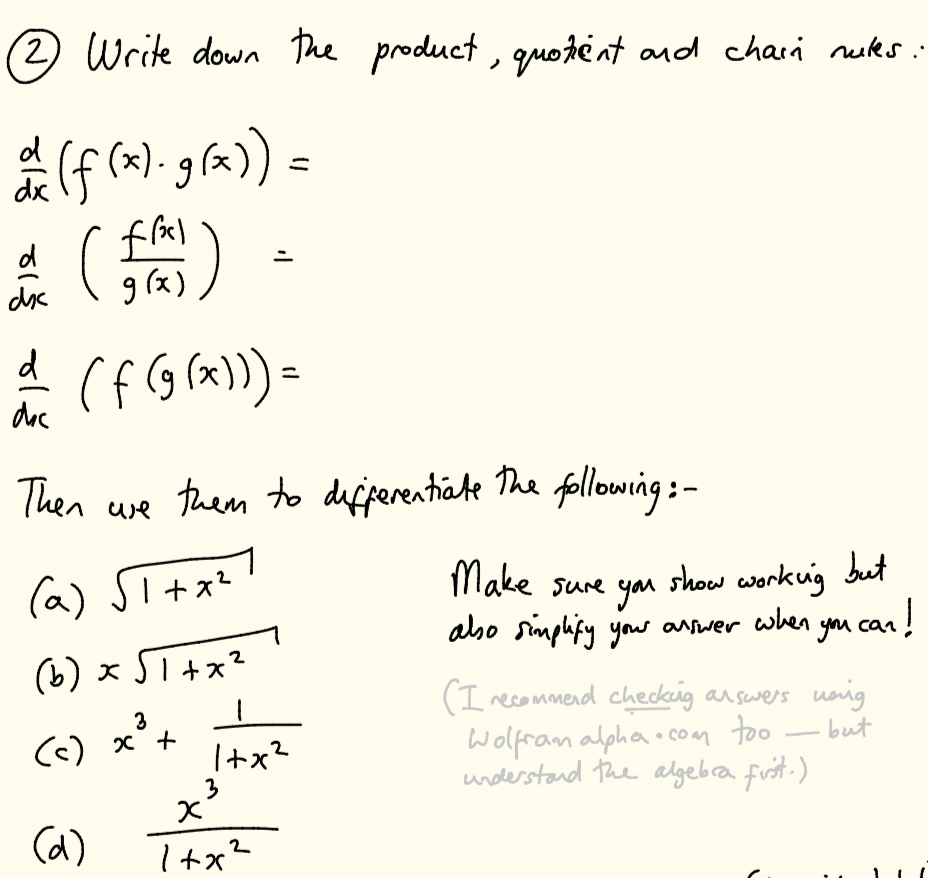 ② Write down the product, quotient and chain rules:
d/dx (f(x) · g(x)) =
d/dx ( f(x)/g(x) ) =
d/dx (f(g(x))) =
Then use them to differentiate the following:-
(a) √(1 + x²)
(b) x √(1 + x²)
(c) x³ + 1/(1+x²)
(d) x³/(1+x²)
Make sure you show working but
also simplify your answer when you can!
(I recommend checking answers using
Wolfram alpha.com too — but
understand the algebra first.)